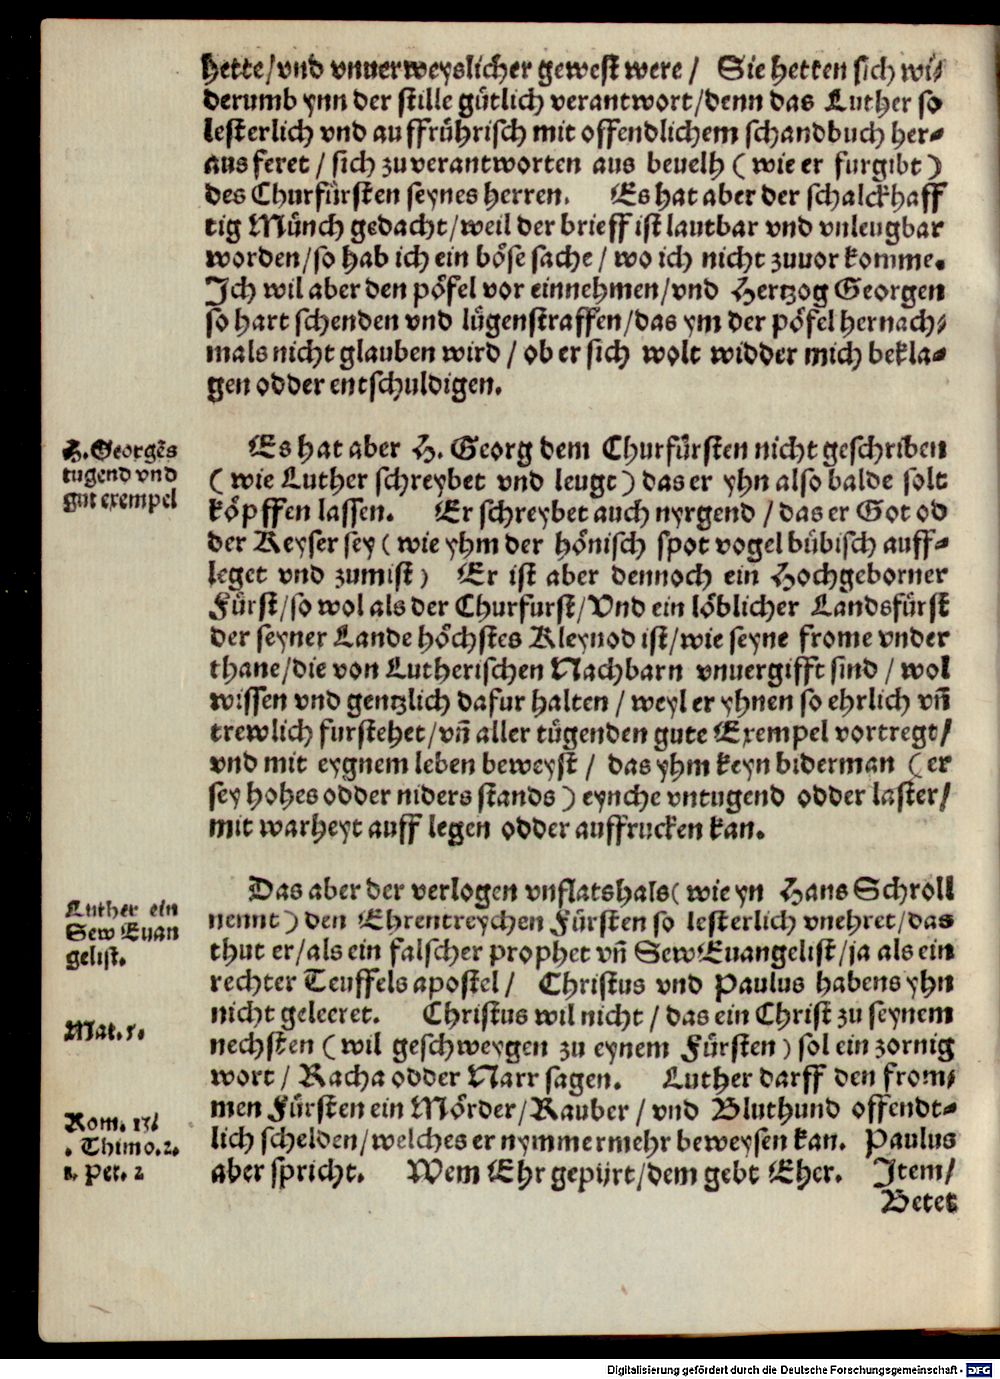 hette/vnd vnuerweyslicher gewest were / Sie hetten sich wi/
derumb ynn der stille gütlich verantwort/denn das Luther so
lesterlich vnd auffrührisch mit offendlichem schandbuch her-
aus feret / sich zuuerantworten aus beuelh ( wie er furgibt )
des Churfürsten seynes herren. Es hat aber der schalckhaff
tig Münch gedacht/weil der brieff ist lautbar vnd vnleugbar
worden/so hab ich ein böse sache / wo ich nicht zuuor komme.
Ich wil aber den pöfel vor einnehmen/vnd Hertzog Georgen
so hart schenden vnd lügenstraffen/das ym der pöfel hernach/
mals nicht glauben wird / ob er sich wolt widder mich bekla-
gen odder entschuldigen.
H. Georgẽs
tugend vnd
gut exempel
Es hat aber H. Georg dem Churfürsten nicht geschriben
( wie Luther schreybet vnd leugt ) das er yhn also balde solt
köpffen lassen. Er schreybet auch nyrgend / das er Got od
der Keyser sey ( wie yhm der hönisch spot vogel bübisch auff-
leget vnd zumist ) Er ist aber dennoch ein Hochgeborner
Fürst/so wol als der Churfurst/Vnd ein löblicher Landsfürst
der seyner Lande höchstes Kleynod ist/wie seyne frome vnder
thane/die von Lutherischen Nachbarn vnuergifft sind / wol
wissen vnd gentzlich dafur halten / weyl er yhnen so ehrlich vñ
trewlich furstehet/vñ aller tügenden gute Exempel vortregt/
vnd mit eygnem leben beweyst / das yhm keyn biderman ( er
sey hohes odder niders stands ) eynche vntugend odder laster/
mit warheyt auff legen odder auffrucken kan.
Luther ein
Sew Euan
gelist.
Mat. 5.
Rom. 13/
. Thimo. 2.
1. Pet. 2
Das aber der verlogen vnflatshals( wie yn Hans Schroll
nennt ) den Ehrentreychen Fürsten so lesterlich vnehret/das
thut er/als ein falscher prophet vñ SewEuangelist/ja als ein
rechter Teuffels apostel / Christus vnd Paulus habens yhn
nicht geleeret. Christus wil nicht / das ein Christ zu seynem
nechsten ( wil geschweygen zu eynem Fürsten ) sol ein zornig
wort / Racha odder Narr sagen. Luther darff den from/
men Fürsten ein Mörder/Rauber / vnd Bluthund offendt-
lich schelden/welches er nymmermehr beweysen kan. Paulus
aber spricht. Wem Ehr gepürt/dem gebt Eher. Item/
Betet
Digitalisierung gefördert durch die Deutsche Forschungsgemeinschaft - DFG